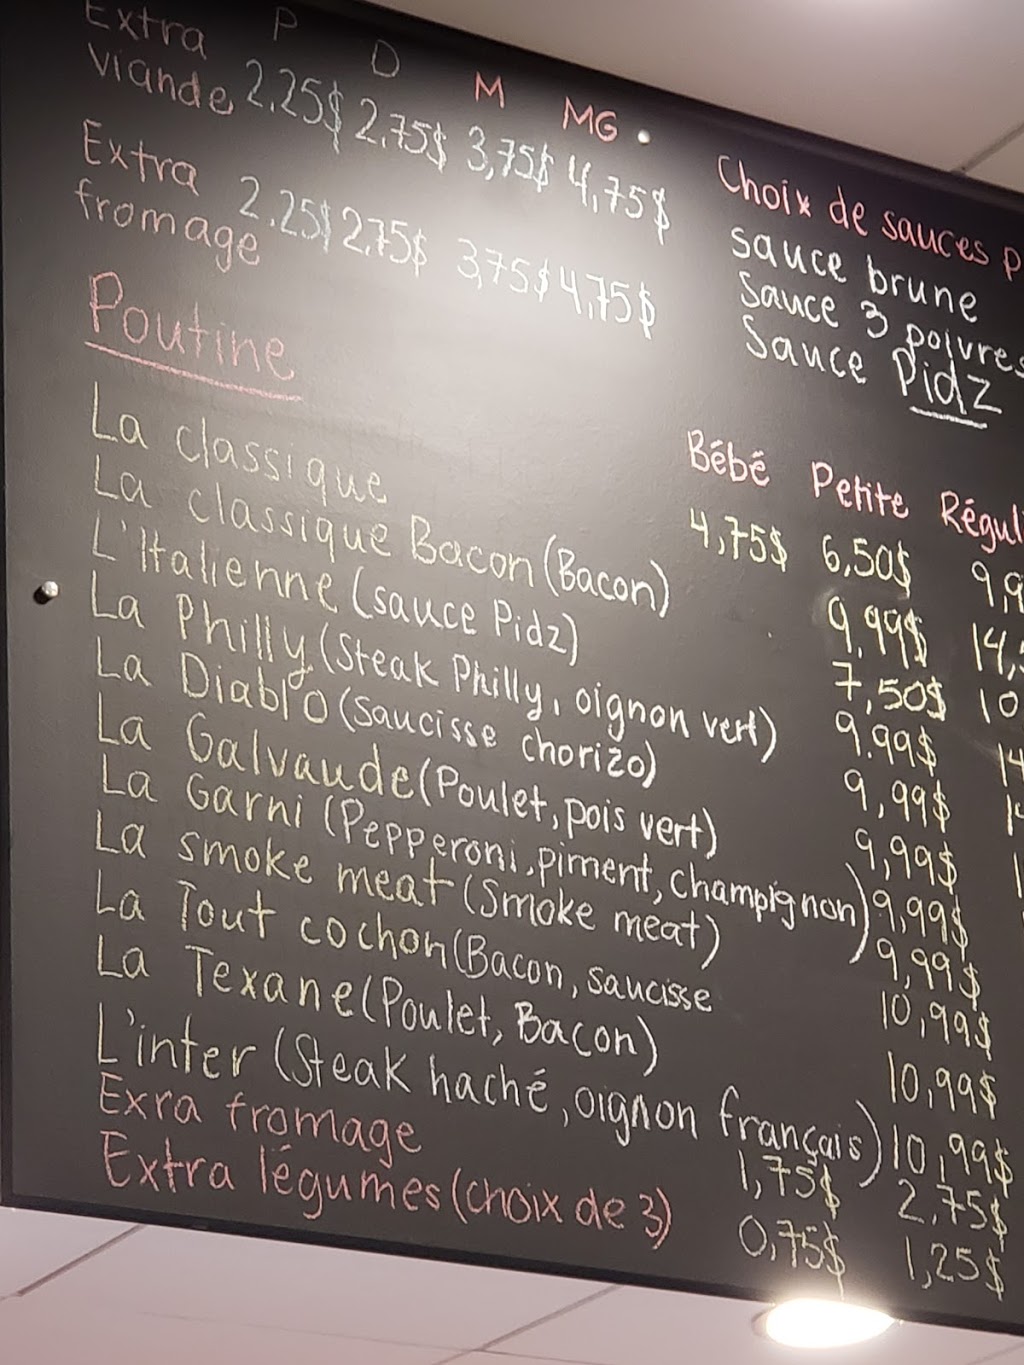 P D M MG
Extra
viande 2,25$ 2,75$ 3,75$ 4,75$
Extra
fromage 2,25$ 2,75$ 3,75$ 4,75$
Choix de sauces
sauce brune
Sauce 3 poivres
Sauce Pidz
Poutine
Bébé Petite
La classique 4,75$ 6,50$
La classique Bacon (Bacon) 9,99$
L'Italienne (sauce Pidz) 7,50$
La Philly (Steak Philly, oignon vert) 9.99$
La Diablo (saucisse chorizo) 9,99$
La Galvaude (Poulet, pois vert) 9,99$
La Garni (Pepperoni, piment, champignon) 9,99$
La smoke meat (Smoke meat) 9,99$
La Tout cochon (Bacon, saucisse 10,99$
La Texane (Poulet, Bacon) 10,99$
L'inter (Steak haché, oignon français) 10,99$
Exra fromage 1,75$ 2,75$
Extra légumes (choix de 3) 0,75$ 1,25$